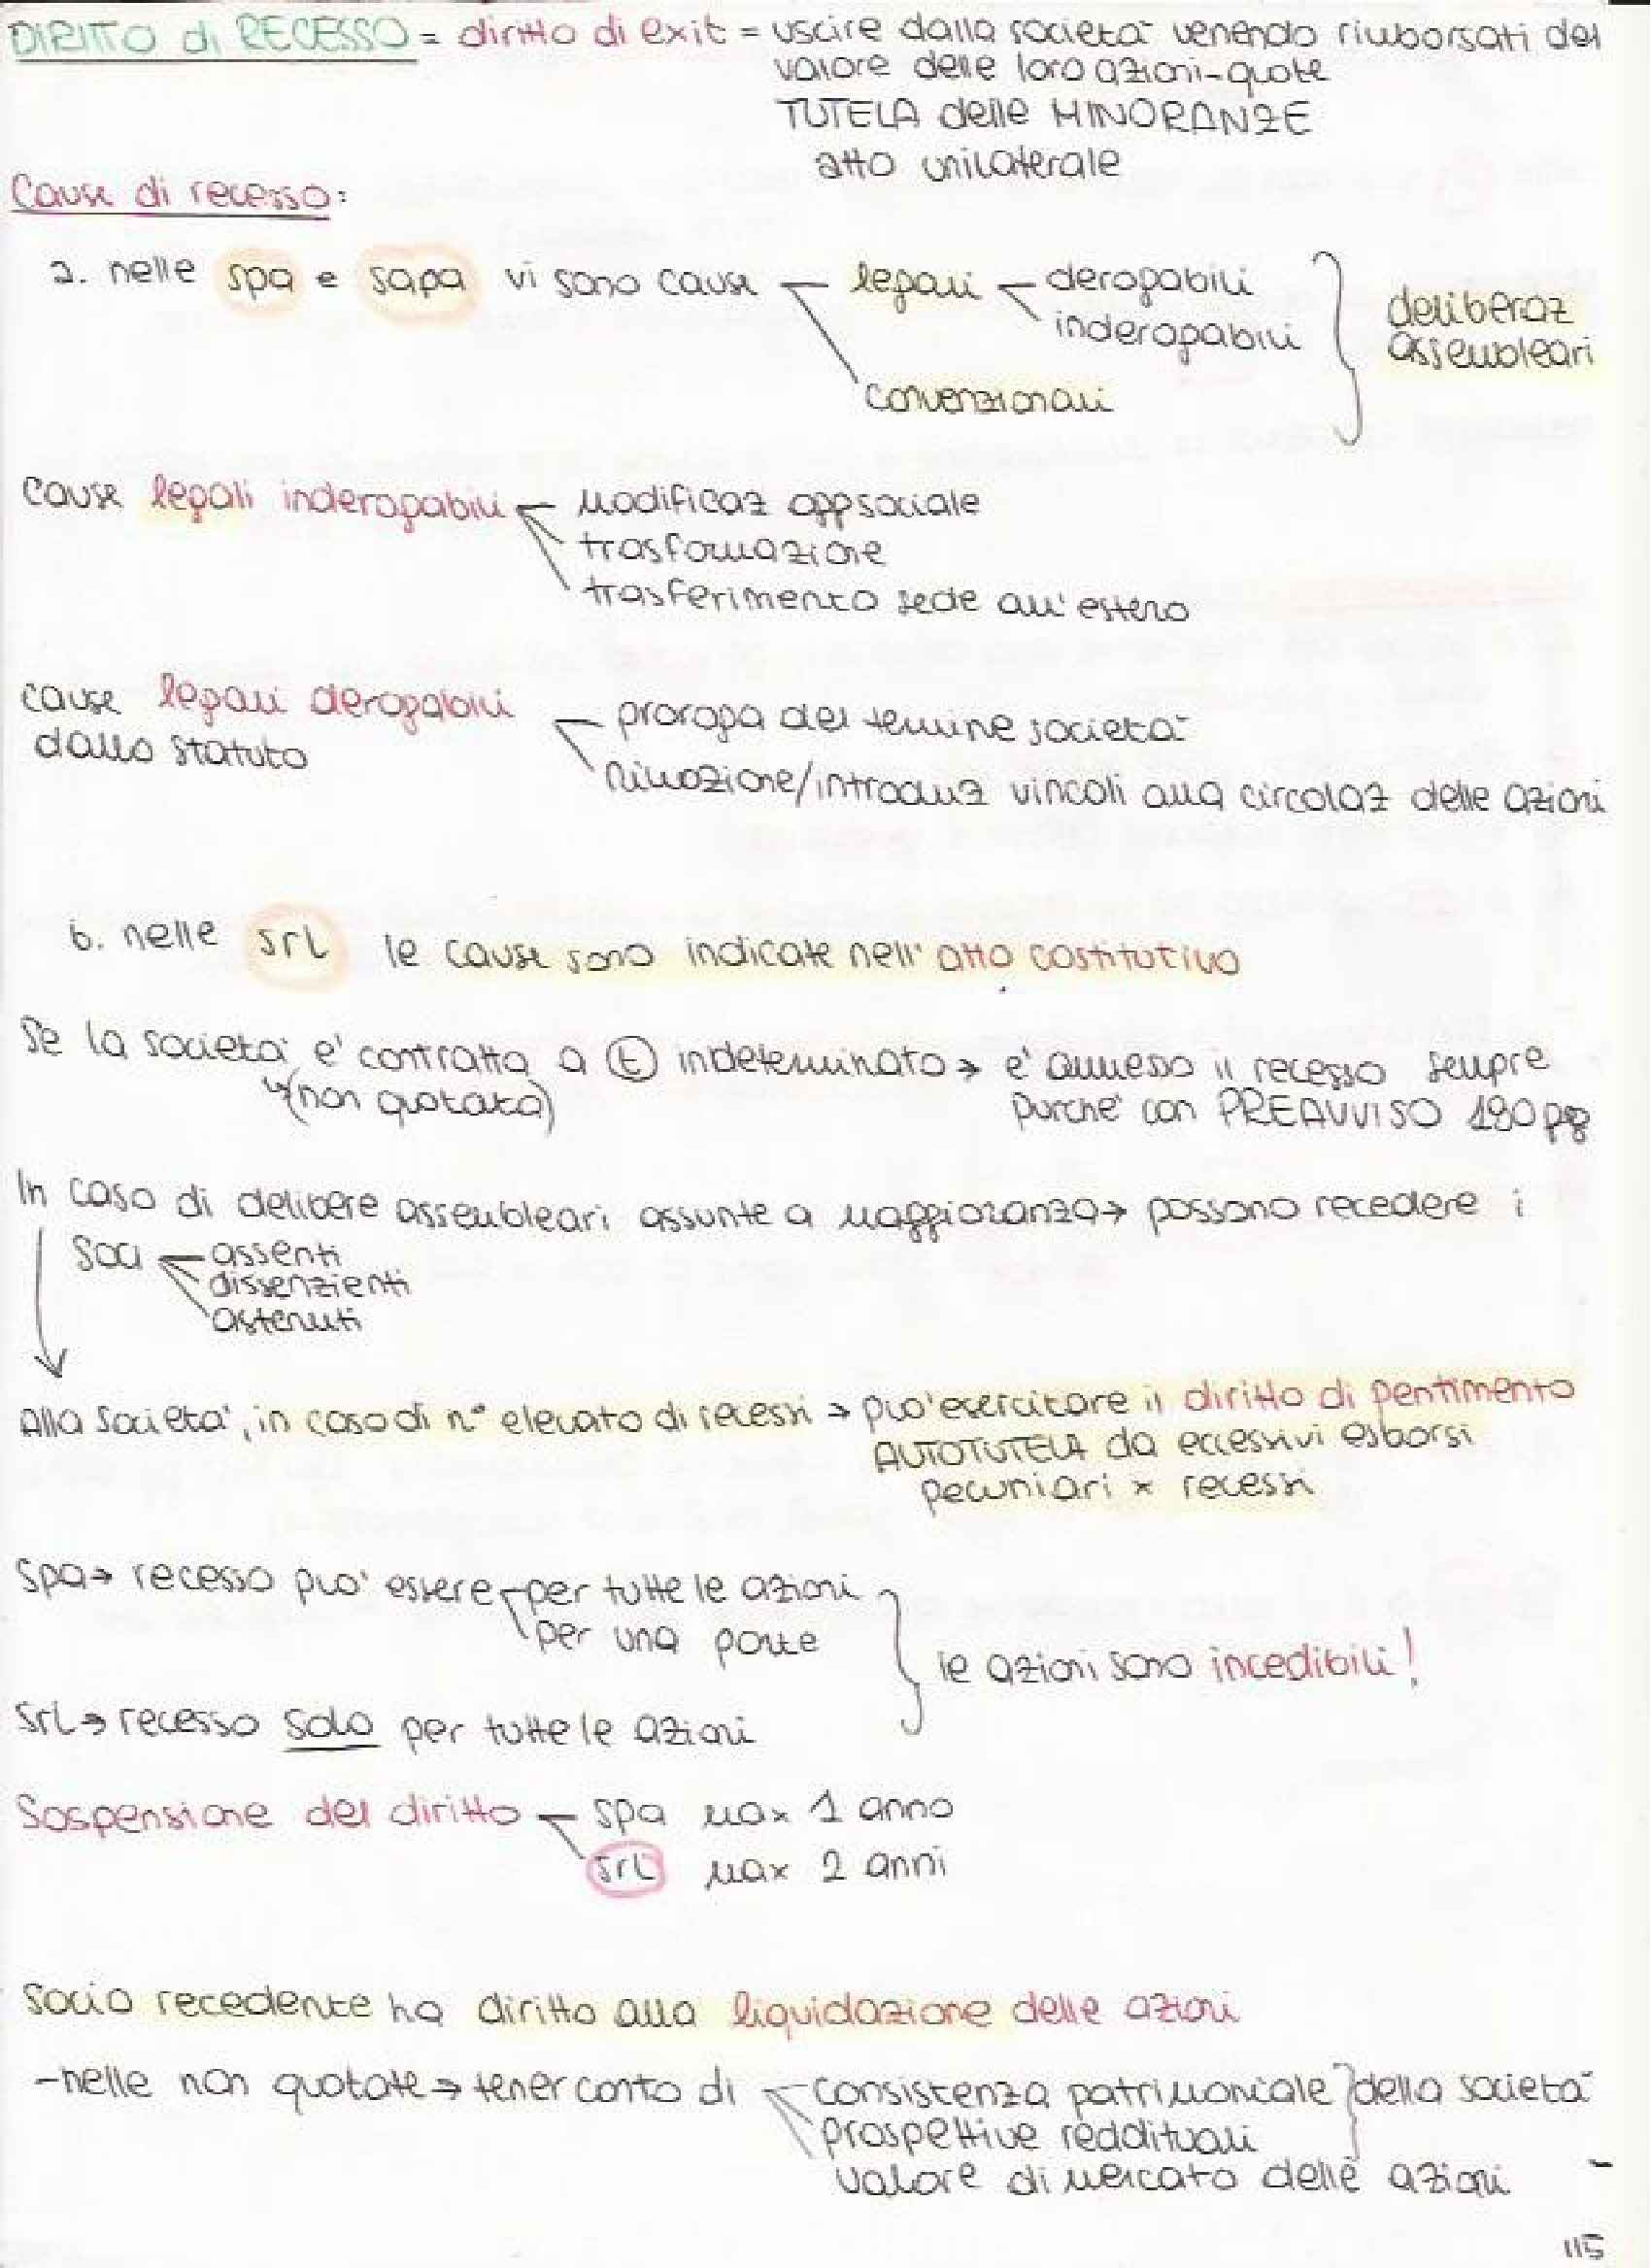 DIRITTO di RECESSO = diritto di exit = uscire dalla società venendo rimborsati del
valore delle loro azioni-quote
TUTELA delle MINORANZE
atto unilaterale
Cause di recesso:
a. nelle spa e sapa vi sono cause legali derogabili
inderogabili
convenzionali
deliberaz
assembleari
cause legali inderogabili modificaz ogg sociale
trasformazione
trasferimento sede all'estero
cause legali derogabili
dallo statuto
proroga del termine società
rimozione/introduz vincoli alla circolaz delle azioni
b. nelle srl le cause sono indicate nell'atto costitutivo
Se la società è contratta a t indeterminato → è ammesso il recesso sempre
↳(non quotata) purchè con PREAVVISO 180 gg
In caso di delibere assembleari assunte a maggioranza → possono recedere i
soci assenti
dissenzienti
astenuti
Alla società, in caso di n° elevato di recessi → può esercitare il diritto di pentimento
AUTOTUTELA da eccessivi esborsi
pecuniari x recessi
Spa → recesso può essere per tutte le azioni
per una parte
le azioni sono incedibili!
Srl → recesso solo per tutte le azioni
Sospensione del diritto spa max 1 anno
srl max 2 anni
Socio recedente ha diritto alla liquidazione delle azioni
-nelle non quotate → tener conto di consistenza patrimoniale della società
prospettive reddituali
valore di mercato delle azioni
115